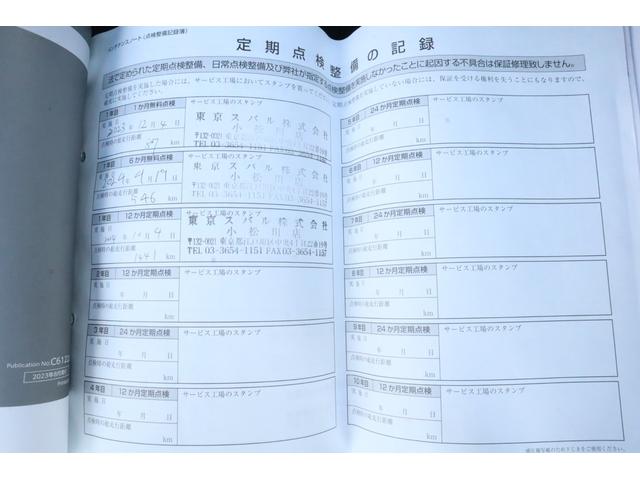 メンテナンスノート(点検整備記録簿)
定期点検整備の記録
法で定められた定期点検整備、日常点検整備及び弊社が指定する点検整備を実施しなかったことに起因する不具合は保証修理致しません。
定期点検整備を実施した場合には、サービス工場においてスタンプを貰ってください。
確実に実施してください。
1年目 1か月無料点検 サービス工場のスタンプ
実施日
2023年12月4日
点検時の総走行距離
57 km
東京スバル株式会社
小松川店
〒132-0021
TEL.03-3654-1151
1年目 6か月無料点検 サービス工場のスタンプ
実施日
2024年4月19日
点検時の総走行距離
546 km
東京スバル株式会社
小松川店
〒132-0021
TEL.03-3654-1151
1年目 12か月定期点検 サービス工場のスタンプ
実施日
点検時の総走行距離
1441 km
東京スバル株式会社
小松川店
〒132-0021 東京都江戸川区中央4丁目22番19号
TEL 03-3654-1151 FAX03-3654-1157
2年目 12か月定期点検 サービス工場のスタンプ
実施日
年 月 日
点検時の総走行距離
km
3年目 24か月定期点検 サービス工場のスタンプ
実施日
年 月 日
点検時の総走行距離
km
4年目 12か月定期点検 サービス工場のスタンプ
実施日
年 月 日
点検時の総走行距離
km
5年目 24か月定期点検 サービス工場のスタンプ
実施日
年 月 日
点検時の総走行距離
km
6年目 12か月定期点検 サービス工場のスタンプ
実施日
年 月 日
点検時の総走行距離
km
7年目 24か月定期点検 サービス工場のスタンプ
実施日
年 月 日
点検時の総走行距離
km
8年目 12か月定期点検 サービス工場のスタンプ
実施日
年 月 日
点検時の総走行距離
km
9年目 24か月定期点検 サービス工場のスタンプ
実施日
年 月 日
点検時の総走行距離
km
10年目 12か月定期点検 サービス工場のスタンプ
実施日
年 月 日
点検時の総走行距離
km
Publication No.C612
2023年8月